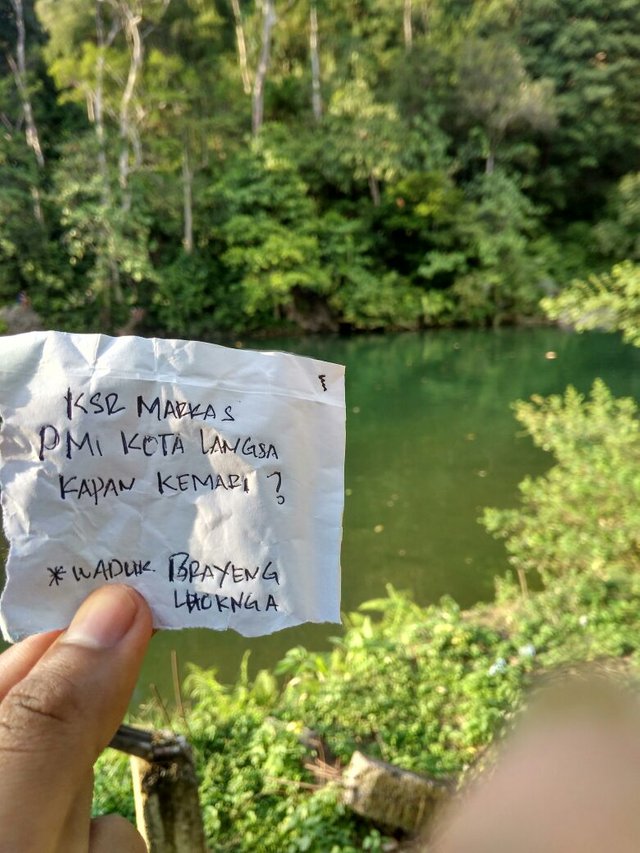 KSR MARKAS
PMI KOTA LANGSA
KAPAN KEMARI ?
*WADUK BRAYENG
LHOKNGA